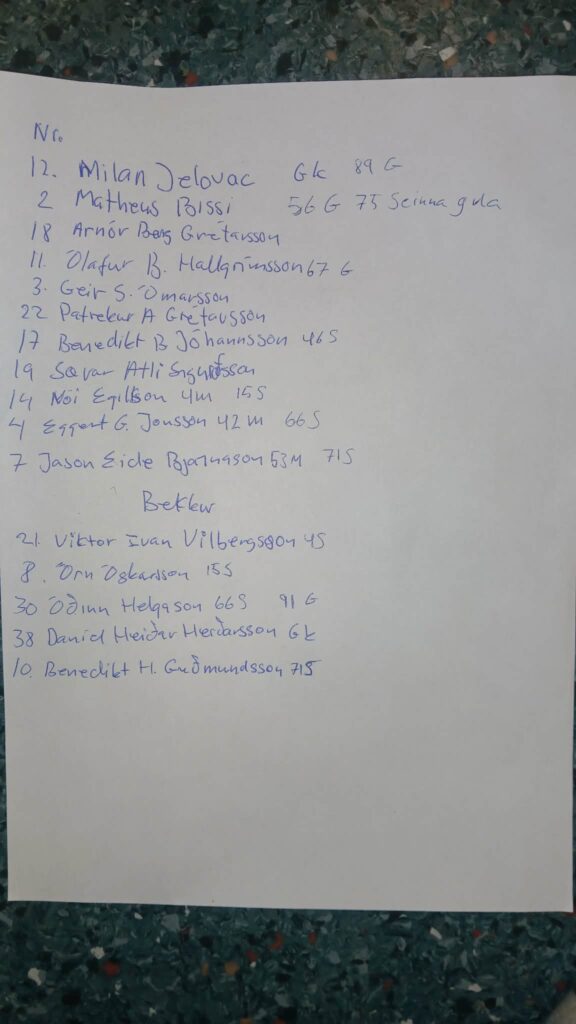 Nr.
12. Milan Jelovac Gk 89 G
2 Matheus Bissi 56 G 75 Seinna gula
18 Arnór Berg Grétarsson
11. Ólafur B. Hallgrímsson 67 G
3. Geir S. Ómarsson
22 Patrekur A Grétarsson
17 Benedikt B Jóhannsson 46 S
19 Sævar Atli
14 Nói Egilsson 4m 15 S
4 Eggert G. Jónsson 42 m 66 S
7 Jason Eide Bjarnason 53 M 71 S
Bekkur
21. Viktor Ivan Vilbergsson 4S
8. Örn Óskarsson 15 S
30 Óðinn Helgason 66 S 91 G
38 Daníel Heiðar Heiðarsson Gk
10. Benedikt H. Guðmundsson 71S